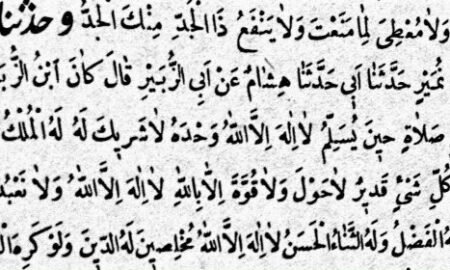 وَلَا مُعْطِيَ لِمَا مَنَعْتَ وَلَا يَنْفَعُ ذَا الْجَدِّ مِنْكَ الْجَدُّ وحدثنا
نُمَيْرٍ حَدَّثَنَا أَبِي حَدَّثَنَا هِشَامٌ عَنْ أَبِي الزُّبَيْرِ قَالَ كَانَ ابْنُ
صَلَاةٍ حِينَ يُسَلِّمُ لَا إِلٰهَ إِلَّا اللّٰهُ وَحْدَهُ لَا شَرِيكَ لَهُ لَهُ الْمُلْكُ
كُلِّ شَيْءٍ قَدِيرٌ لَا حَوْلَ وَلَا قُوَّةَ إِلَّا بِاللّٰهِ لَا إِلٰهَ إِلَّا اللّٰهُ وَلَا
الْفَضْلُ وَلَهُ الثَّنَاءُ الْحَسَنُ لَا إِلٰهَ إِلَّا اللّٰهُ مُخْلِصِينَ لَهُ الدِّينَ وَلَوْ كَرِهَ